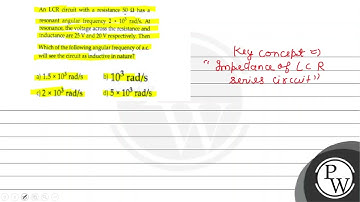 An LCR circuit with a resistance 50 Ω has a
resonant angular frequency 2 × 10³ rad/s. At
resonance, the voltage across the resistance and
inductance are 25 V and 20 V respectively. Then
Which of the following angular frequency of a.c.
will see the circuit as inductive in nature?
a) 1.5 × 10³ rad/s b) 10³ rad/s
c) 2 × 10³ rad/s d) 5 × 10³ rad/s
Key concept ⇒
"Impedance of LCR
series circuit"
P
W